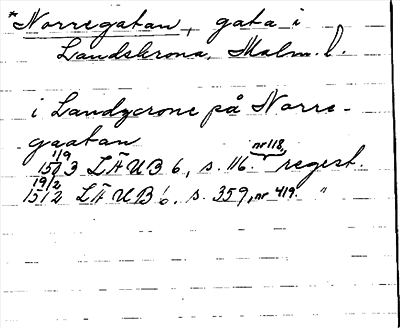 *Norregatan, gata i
Landskrona, Malm. l.
i Landzcrone på Norre-
gaatan
1/9 1503 LÄUB 6, s. 116. nr 118, regest.
19/2 1512 LÄUB 6, s. 359, nr 419. "